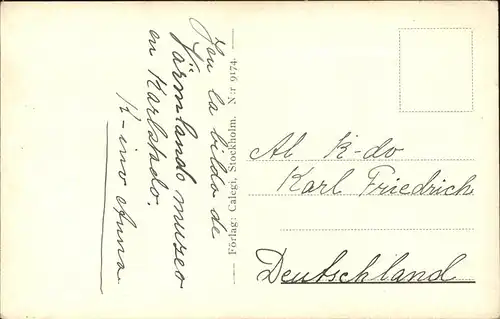 Jen la bildo de
Värmlando museo
en Karlstado.
K-ino Anna
Förlag: Calegi, Stockholm. N:r 9174.
Al K-do
Karl Friedrich
Deutschland